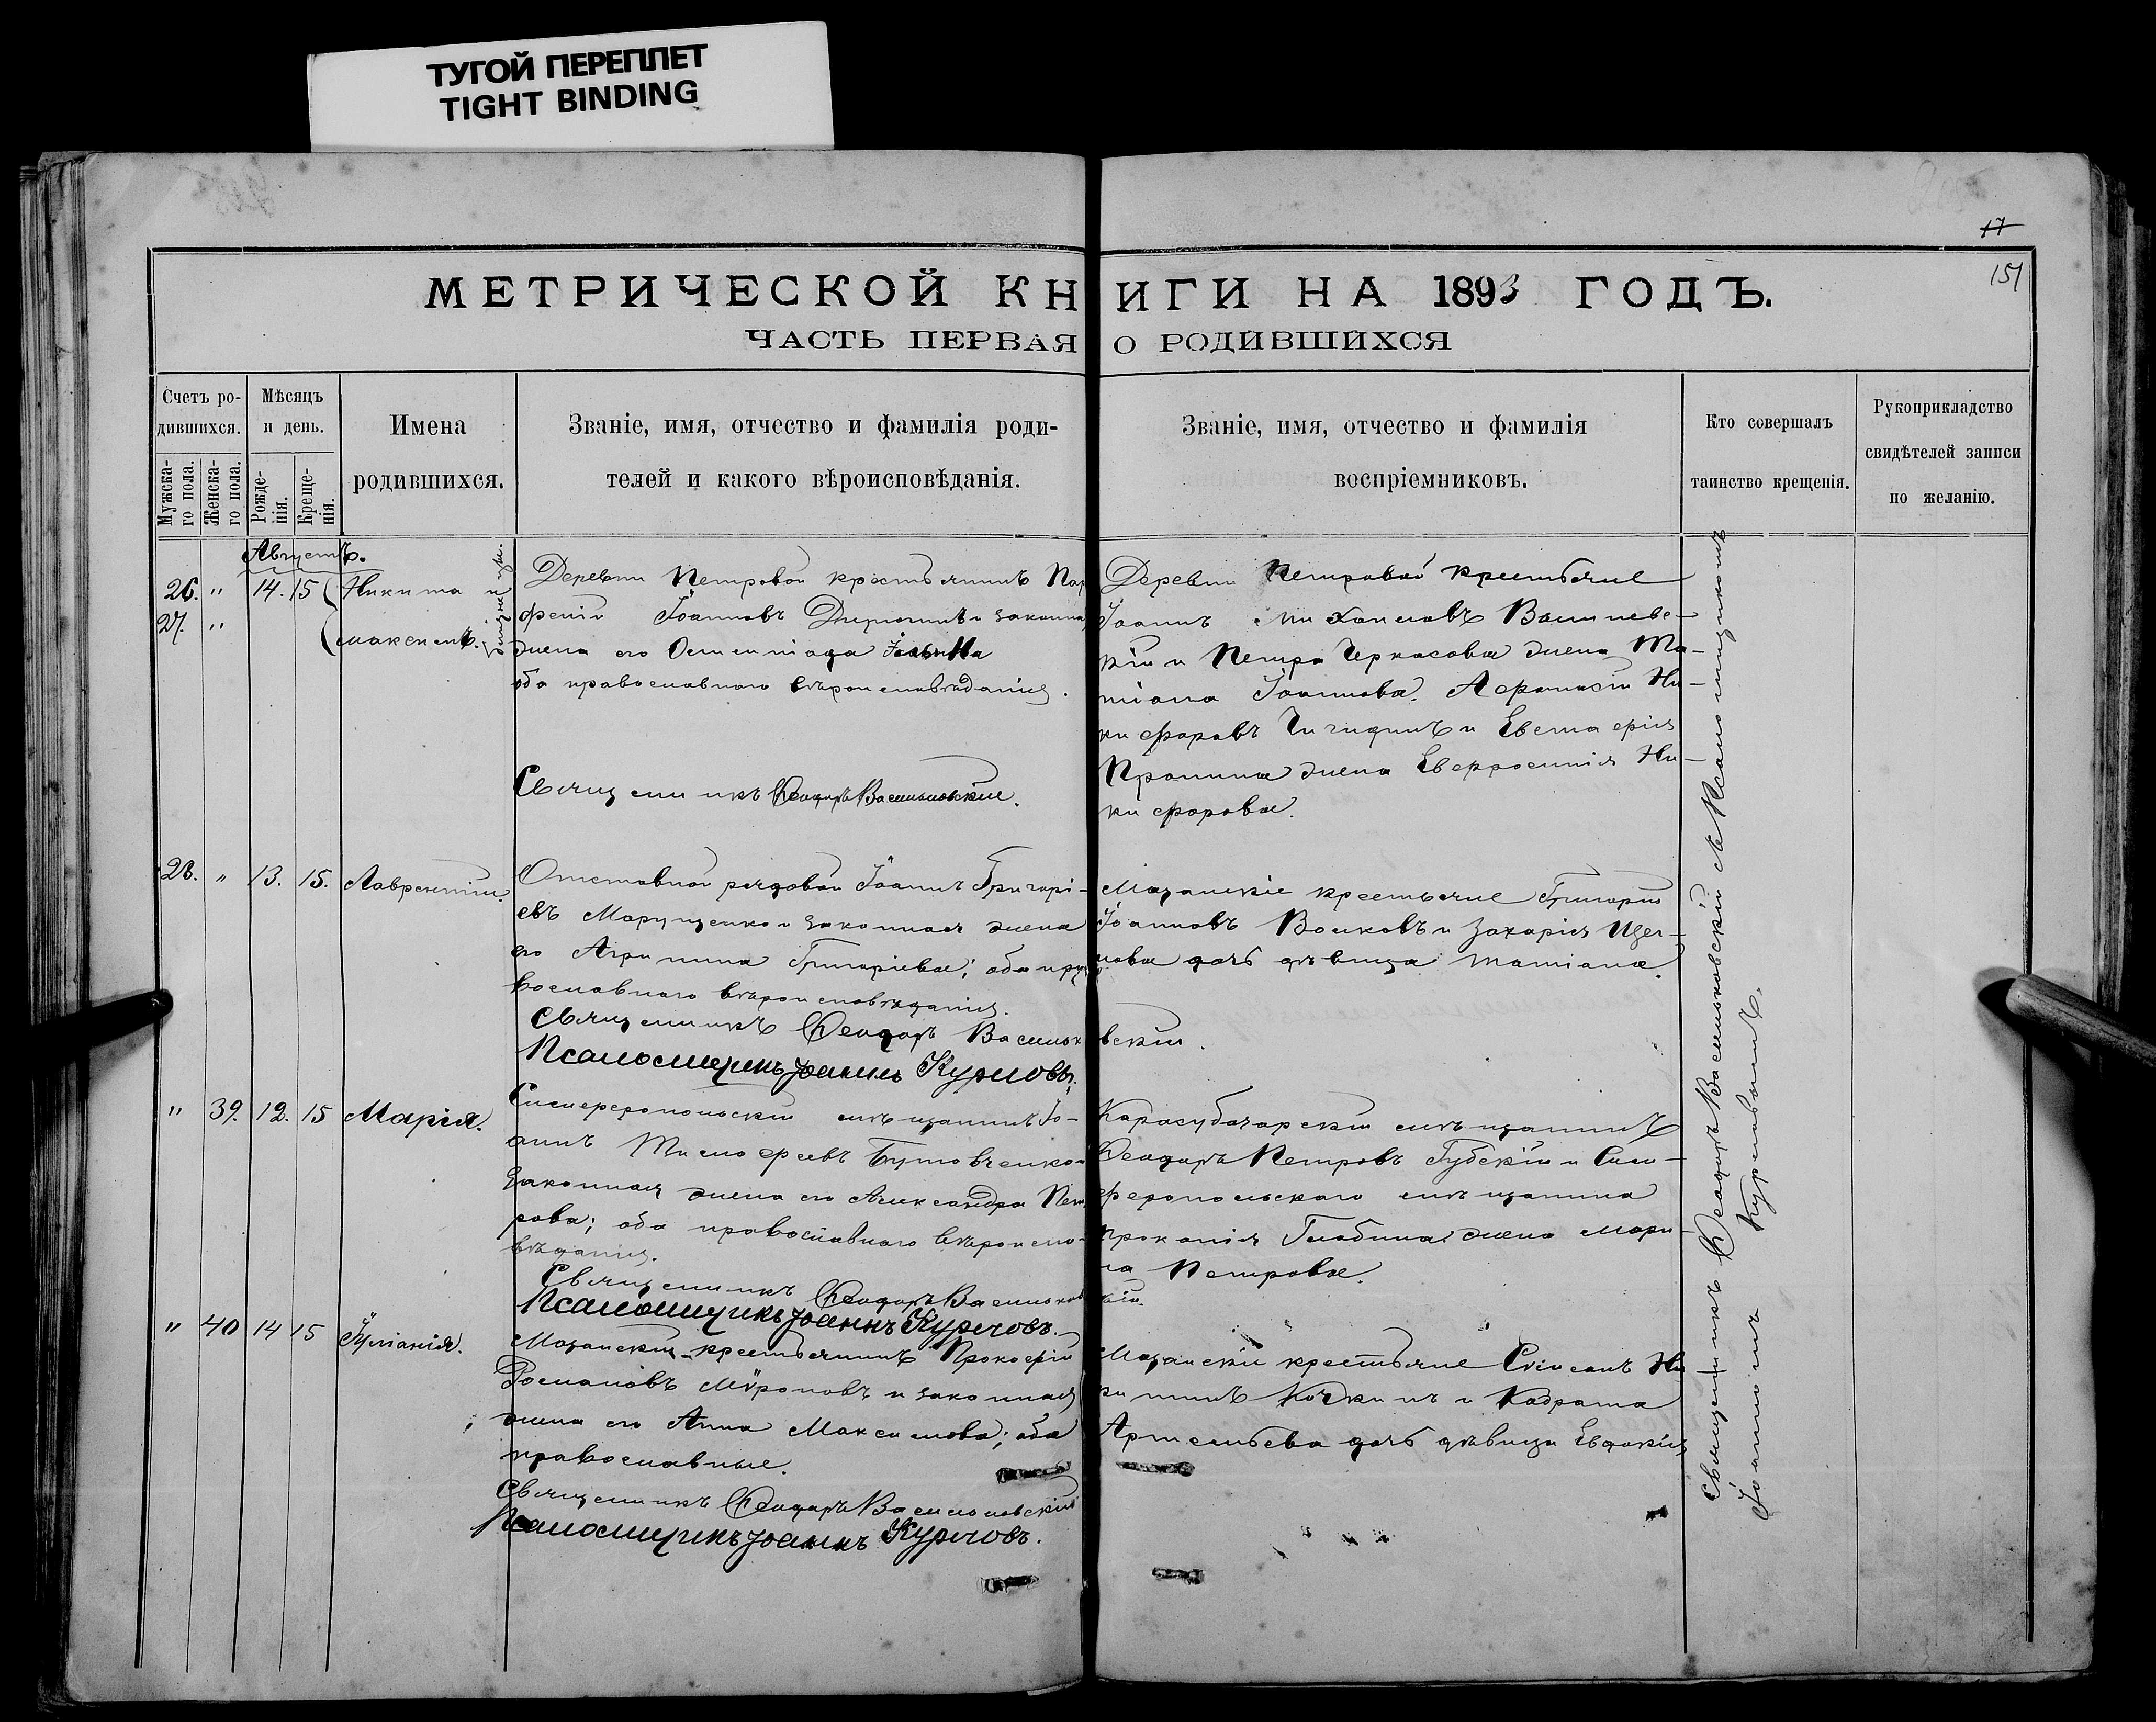 ТУГОЙ ПЕРЕПЛЕТ
TIGHT BINDING
17
151
МЕТРИЧЕСКОЙ КНИГИ НА 1893 ГОДЪ.
ЧАСТЬ ПЕРВАЯ О РОДИВШИХСЯ
Счетъ ро-
дившихся.
Мужска-
го пола.
Женска-
го пола.
Мѣсяцъ
и день.
Рожде-
нія.
Креще-
нія.
Имена
родившихся.
Званіе, имя, отчество и фамилія роди-
телей и какого вѣроисповѣданія.
Званіе, имя, отчество и фамилія
воспріемниковъ.
Кто совершалъ
таинство крещенія.
Рукоприкладство
свидѣтелей записи
по желанію.
Августъ.
26. " 14. 15 Никита и
27. " Максимъ.
близнецы.
Деревни Петровой крестьянинъ Пар
феній Іоанновъ и законная
жена его
оба православнаго вѣроисповѣданія.
Священникъ Ѳеодоръ Васильковскій.
Деревни Петровой крестьяне
Іоаннъ Михаиловъ
кій и Петра Черкасова жена Та-
тіана Іоаннова. Аѳанасій Ни-
кифоровъ и Евстафія
Пронина жена Евфросинія Ни-
кифорова.
28. " 13. 15. Лаврентій.
Отставной рядовой Іоаннъ Григорі-
евъ Марущенко и законная жена
его Агрипина Григоріева; оба пра
вославнаго вѣроисповѣданія.
Священникъ Ѳеодоръ Васильковскій.
Псаломщикъ Іоаннъ Курловъ.
Мазанскіе крестьяне Григорій
Іоанновъ Волковъ и Захарія Щег-
лова дочь дѣвица Татіана.
" 39. 12. 15 Марія.
Симферопольскій мѣщанинъ Іо-
аннъ Тимофеевъ Бутовченко и
законная жена его Александра Пет
рова; оба православнаго вѣроиспо-
вѣданія.
Священникъ Ѳеодоръ Васильковскій.
Псаломщикъ Іоаннъ Курловъ.
Карасубазарскій мѣщанинъ
Ѳеодоръ Петровъ Губскій и Сим-
феропольскаго мѣщанина
Прокопія жена Мари
на Петрова.
" 40 14 15 Іуліанія.
Мазанскій крестьянинъ Прокофій
Романовъ Мѵроновъ и законная
жена его Анна Максимова; оба
православные.
Священникъ Ѳеодоръ Васильковскій
Псаломщикъ Іоаннъ Курловъ.
Мазанскіе крестьяне Стефанъ Ни
китинъ и Кодрата
Артемьева дочь дѣвица Евдокія
Священникъ Ѳеодоръ Васильковскій съ Псаломщикомъ
Іоанномъ Курловымъ.